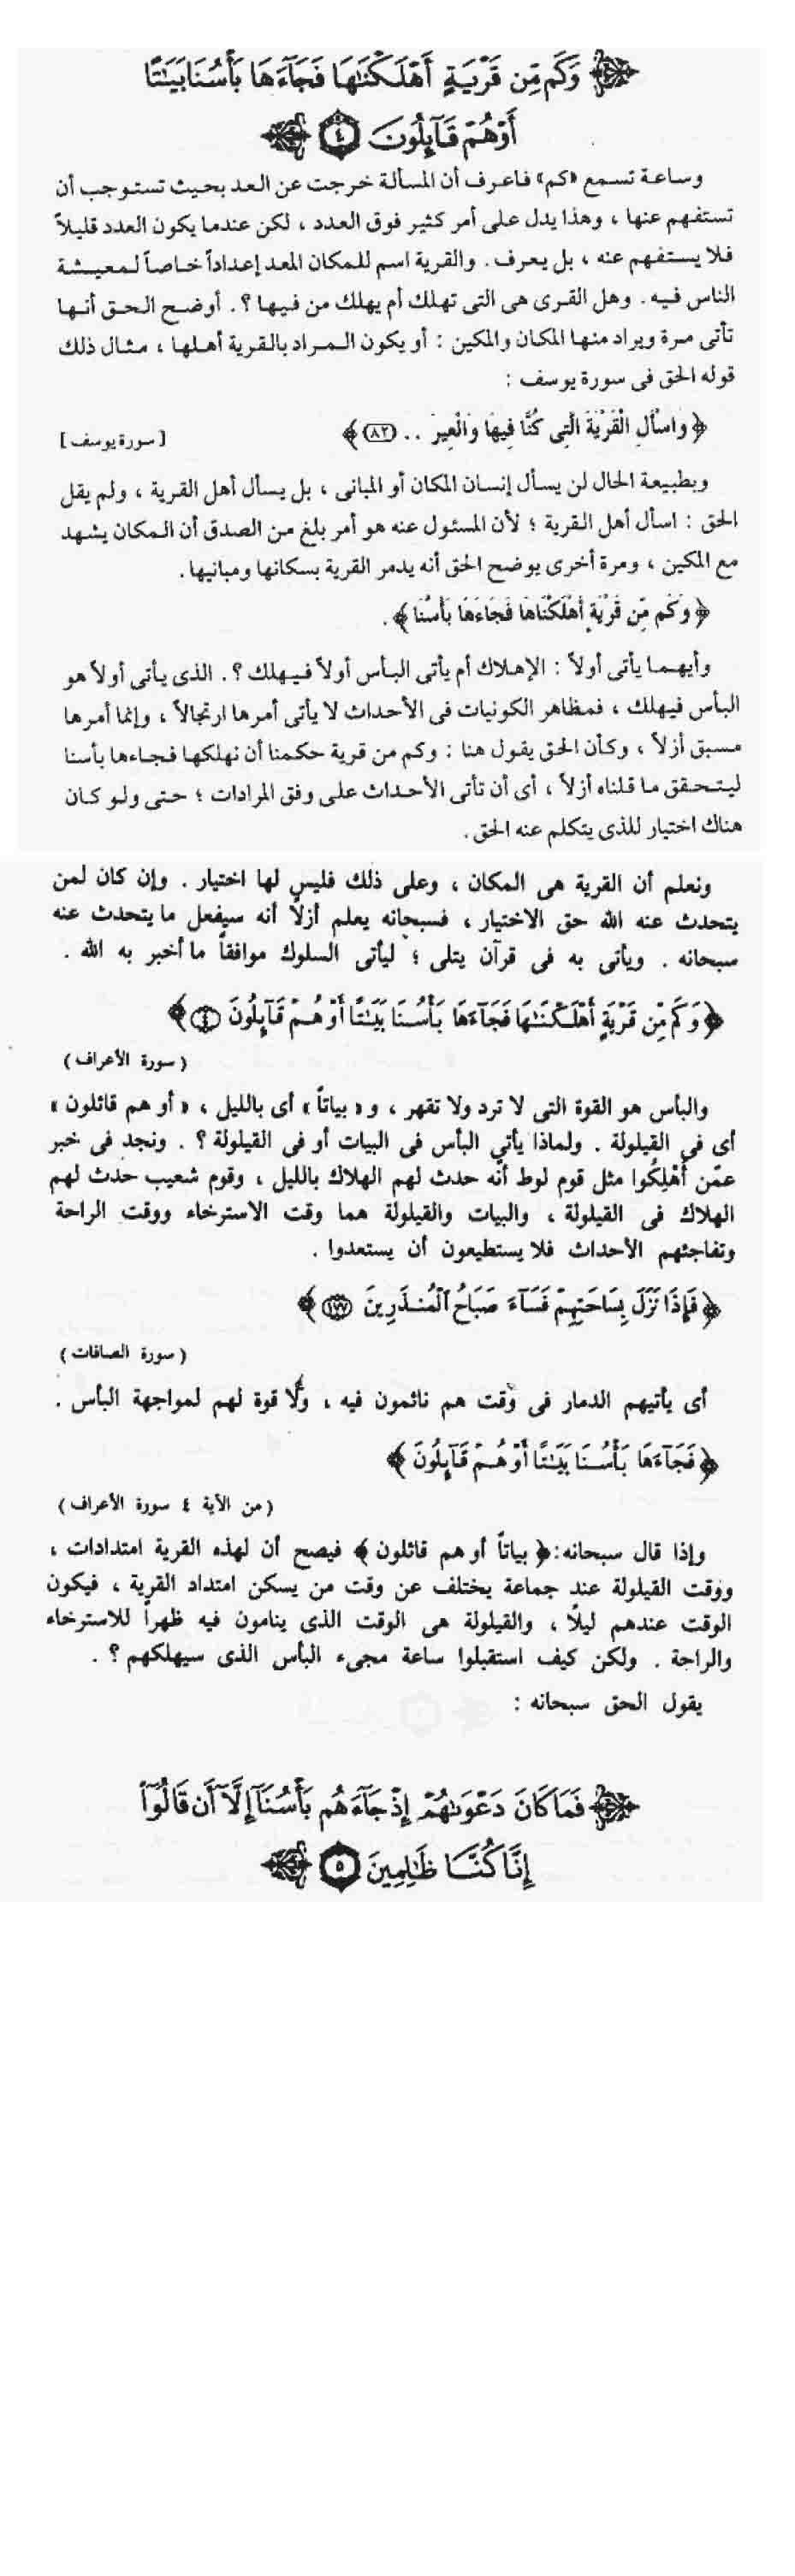 وَكَم مِّن قَرْيَةٍ أَهْلَكْنَٰهَا فَجَآءَهَا بَأْسُنَا بَيَٰتًا
أَوْهُمْ قَآئِلُونَ ٤
وساعة تسمع «كم» فاعرف أن المسألة خرجت عن العد بحيث تستوجب أن
تستفهم عنها ، وهذا يدل على أمر كثير فوق العدد ، لكن عندما يكون العدد قليلاً
فلا يستفهم عنه ، بل يعرف . والقرية اسم للمكان المعد إعداداً خاصاً لمعيشة
الناس فيه . وهل القرى هى التى تهلك أم يهلك من فيها ؟ . أوضح الحق أنها
تأتى مرة ويراد منها المكان والمكين : أو يكون المراد بالقرية أهلها ، مثال ذلك
قوله الحق فى سورة يوسف :
﴿ وَاسْأَلِ الْقَرْيَةَ الَّتِى كُنَّا فِيهَا وَالْعِيرَ .. (٨٢) ﴾
[ سورة يوسف ]
وبطبيعة الحال لن يسأل إنسان المكان أو المبانى ، بل يسأل أهل القرية ، ولم يقل
الحق : اسأل أهل القرية ؛ لأن المسئول عنه هو أمر بلغ من الصدق أن المكان يشهد
مع المكين ، ومرة أخرى يوضح الحق أنه يدمر القرية بسكانها ومبانيها .
﴿ وَكَم مِّن قَرْيَةٍ أَهْلَكْنَاهَا فَجَاءَهَا بَأْسُنَا ﴾ .
وأيهما يأتى أولاً : الإهلاك أم يأتى البأس أولاً فيهلك ؟ . الذى يأتى أولاً هو
البأس فيهلك ، فمظاهر الكونيات فى الأحداث لا يأتى أمرها ارتجالاً ، وإنما أمرها
مسبق أزلاً ، وكأن الحق يقول هنا : وكم من قرية حكمنا أن نهلكها فجاءها بأسنا
ليتحقق ما قلناه أزلاً ، أى أن تأتى الأحداث على وفق المرادات ؛ حتى ولو كان
هناك اختيار للذى يتكلم عنه الحق .
ونعلم أن القرية هى المكان ، وعلى ذلك فليس لها اختيار . وإن كان لمن
يتحدث عنه الله حق الاختيار ، فسبحانه يعلم أزلاً أنه سيفعل ما يتحدث عنه
سبحانه . ويأتى به فى قرآن يتلى ؛ ليأتى السلوك موافقاً ما أخبر به الله .
﴿ وَكَم مِّن قَرْيَةٍ أَهْلَكْنَٰهَا فَجَآءَهَا بَأْسُنَا بَيَٰتًا أَوْ هُمْ قَآئِلُونَ ٤ ﴾
( سورة الأعراف )
والبأس هو القوة التى لا ترد ولا تقهر ، و « بياتاً » أى بالليل ، « أو هم قائلون »
أى فى القيلولة . ولماذا يأتي البأس فى البيات أو فى القيلولة ؟ . ونجد فى خبر
عمّن أُهْلِكُوا مثل قوم لوط أنه حدث لهم الهلاك بالليل ، وقوم شعيب حدث لهم
الهلاك فى القيلولة ، والبيات والقيلولة هما وقت الاسترخاء ووقت الراحة
وتفاجئهم الأحداث فلا يستطيعون أن يستعدوا .
﴿ فَإِذَا نَزَلَ بِسَاحَتِهِمْ فَسَآءَ صَبَاحُ ٱلْمُنذَرِينَ ١٧٧ ﴾
( سورة الصافات )
أى يأتيهم الدمار فى وقت هم نائمون فيه ، ولا قوة لهم لمواجهة البأس .
﴿ فَجَآءَهَا بَأْسُنَا بَيَٰتًا أَوْ هُمْ قَآئِلُونَ ﴾
( من الآية ٤ سورة الأعراف )
وإذا قال سبحانه : ﴿ بياتاً أو هم قائلون ﴾ فيصح أن لهذه القرية امتدادات ،
ووقت القيلولة عند جماعة يختلف عن وقت من يسكن امتداد القرية ، فيكون
الوقت عندهم ليلاً ، والقيلولة هى الوقت الذى ينامون فيه ظهراً للاسترخاء
والراحة . ولكن كيف استقبلوا ساعة مجىء البأس الذى سيهلكهم ؟ .
يقول الحق سبحانه :
فَمَا كَانَ دَعْوَىٰهُمْ إِذْ جَآءَهُم بَأْسُنَآ إِلَّآ أَن قَالُوٓا۟
إِنَّا كُنَّا ظَٰلِمِينَ ٥